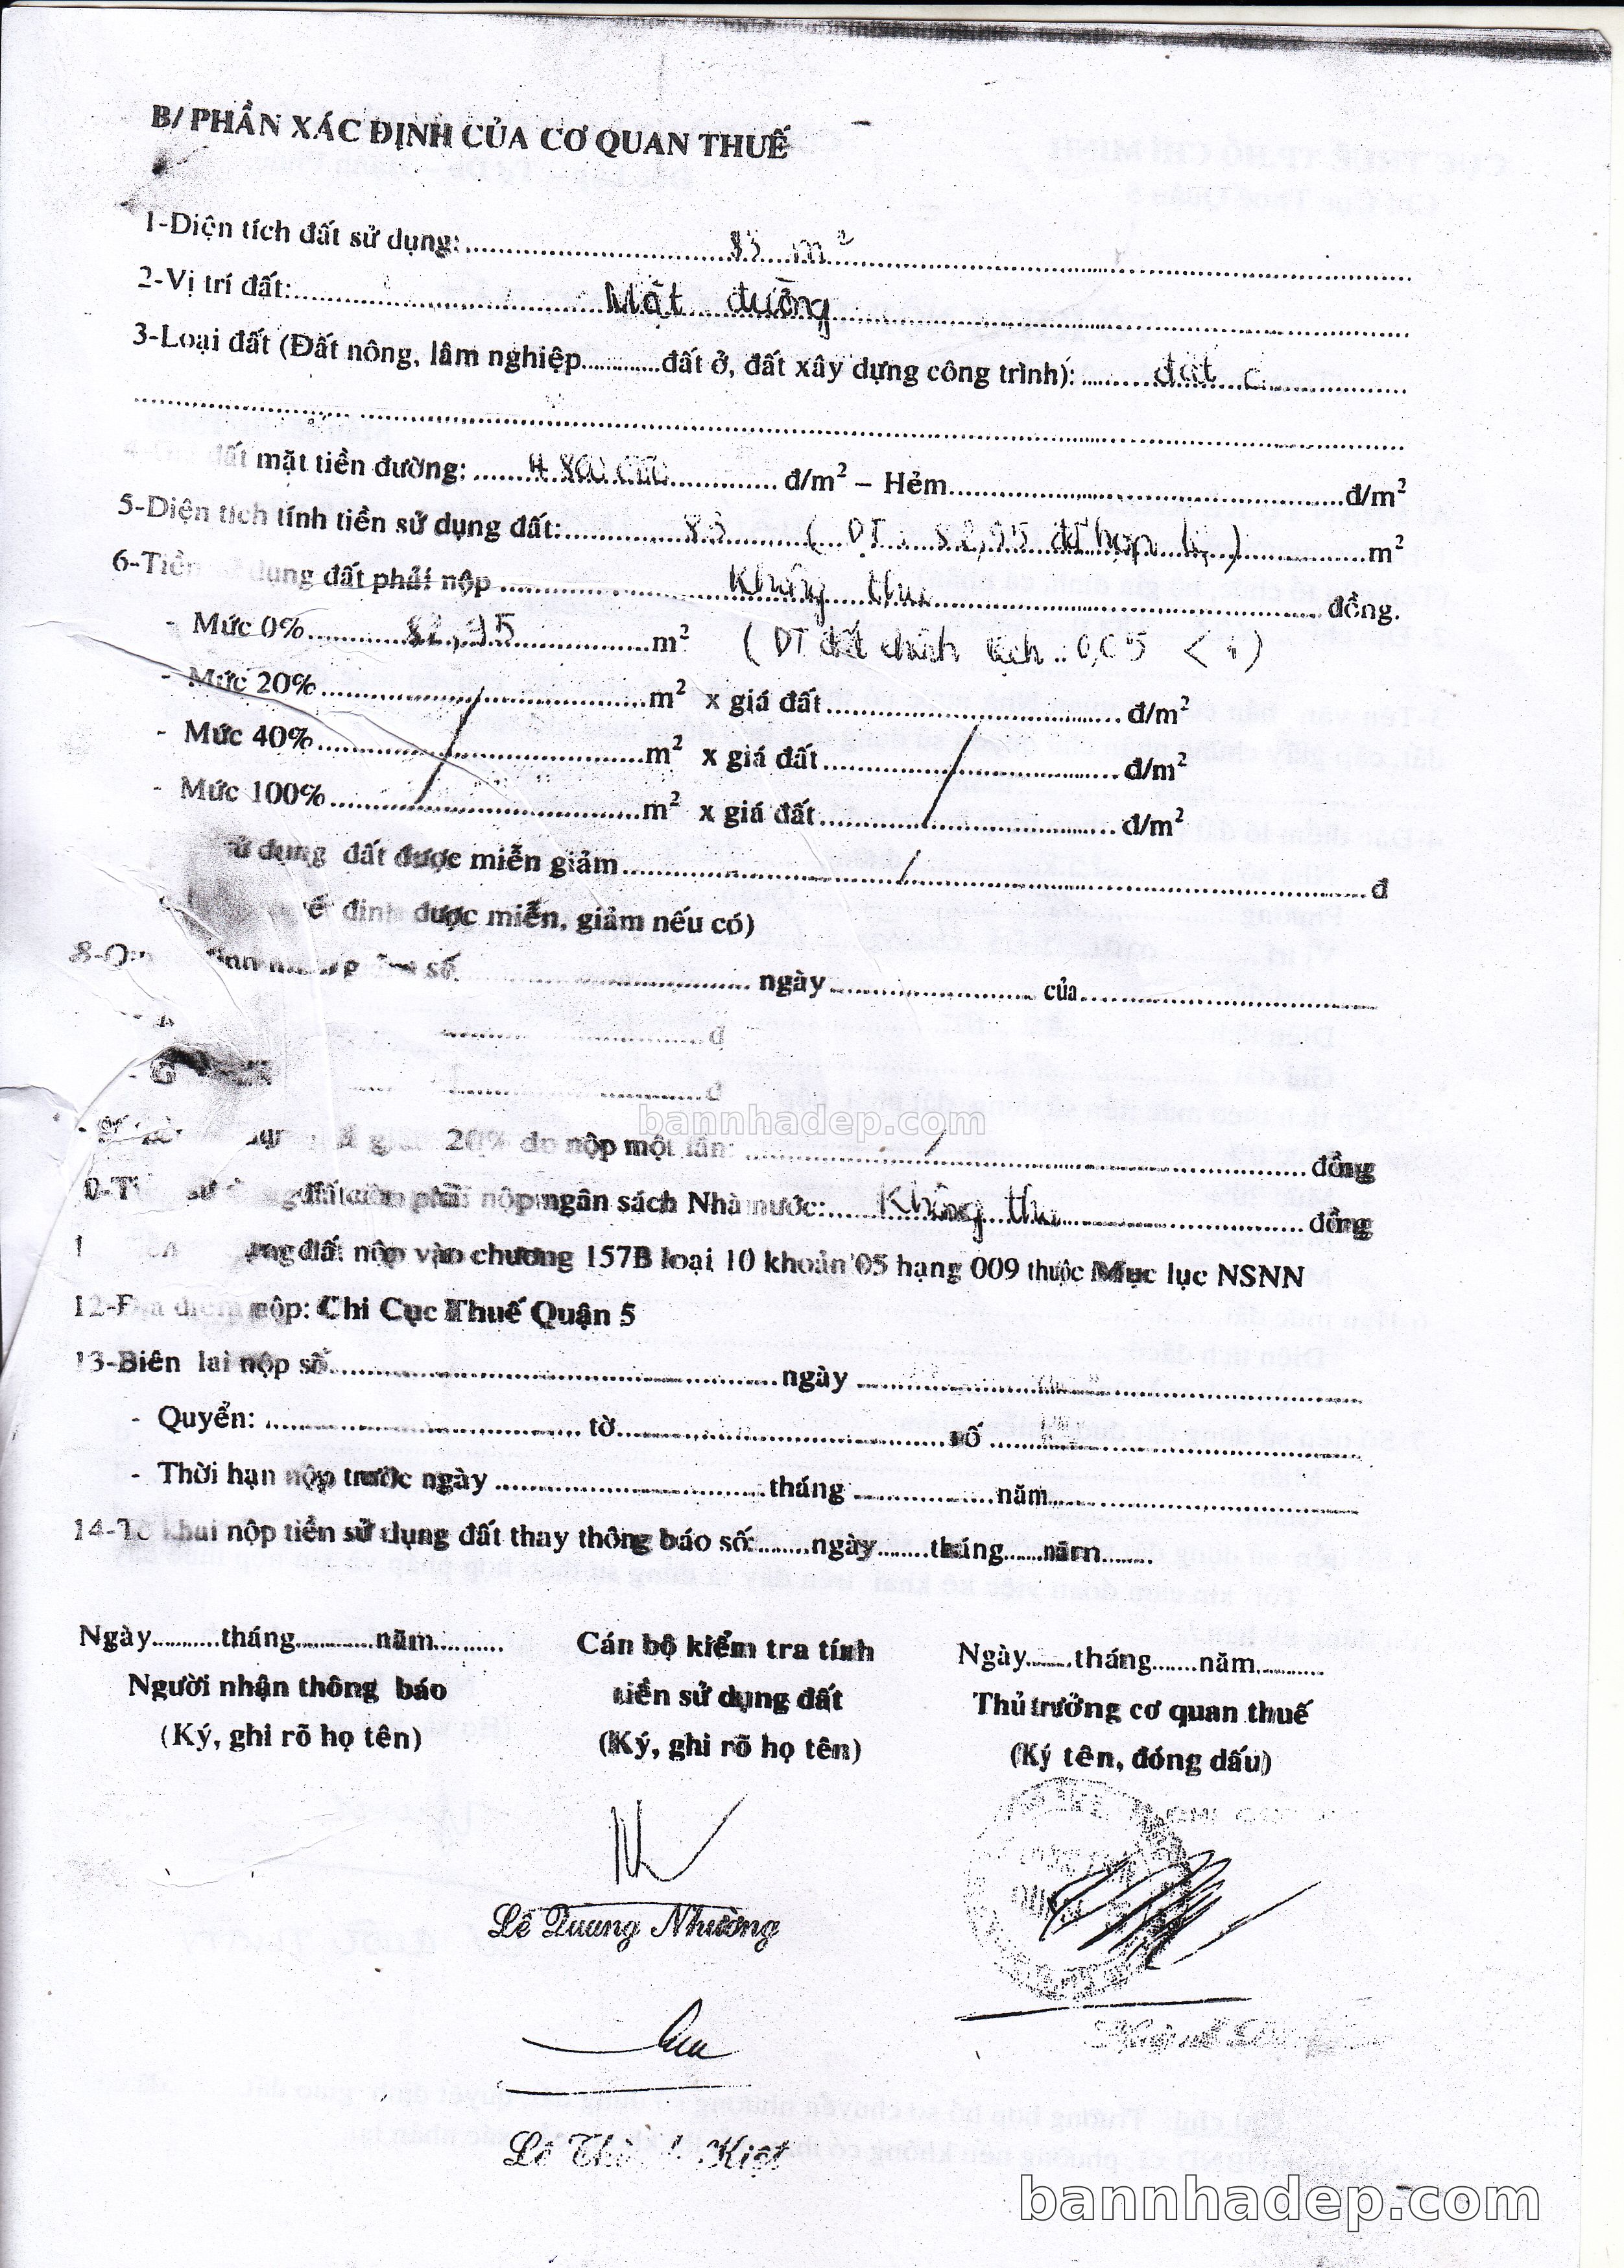 B/ PHẦN XÁC ĐỊNH CỦA CƠ QUAN THUẾ
1-Diện tích đất sử dụng: 83 m²
2-Vị trí đất: Mặt đường
3-Loại đất (Đất nông, lâm nghiệp............đất ở, đất xây dựng công trình): đất ở
đất mặt tiền đường: 4.800.000 đ/m² – Hẻm đ/m²
5-Diện tích tính tiền sử dụng đất: 83 (DT: 82,95 đã hợp lệ) m²
6-Tiền sử dụng đất phải nộp Không thu đồng.
- Mức 0% 82,95 m² (DT đất chênh lệch: 0,05 < 1)
- Mức 20% m² x giá đất đ/m²
- Mức 40% m² x giá đất đ/m²
- Mức 100% m² x giá đất đ/m²
sử dụng đất được miễn giảm đ
định được miễn, giảm nếu có)
số ngày của
đ
đ
bannhadep.com
20% do nộp một lần: đồng
phải nộp ngân sách Nhà nước: Không thu đồng
đất nộp vào chương 157B loại 10 khoản 05 hạng 009 thuộc Mục lục NSNN
12-Địa điểm nộp: Chi Cục Thuế Quận 5
13-Biên lai nộp số ngày
- Quyển: tờ số
- Thời hạn nộp trước ngày tháng năm
14-Tờ khai nộp tiền sử dụng đất thay thông báo số:........ngày........tháng.......năm........
Ngày...........tháng............năm...........
Cán bộ kiểm tra tính
Ngày.......tháng.......năm..........
Người nhận thông báo
tiền sử dụng đất
Thủ trưởng cơ quan thuế
(Ký, ghi rõ họ tên)
(Ký, ghi rõ họ tên)
(Ký tên, đóng dấu)
Lê Quang Nhường
Lê Kiệt
bannhadep.com